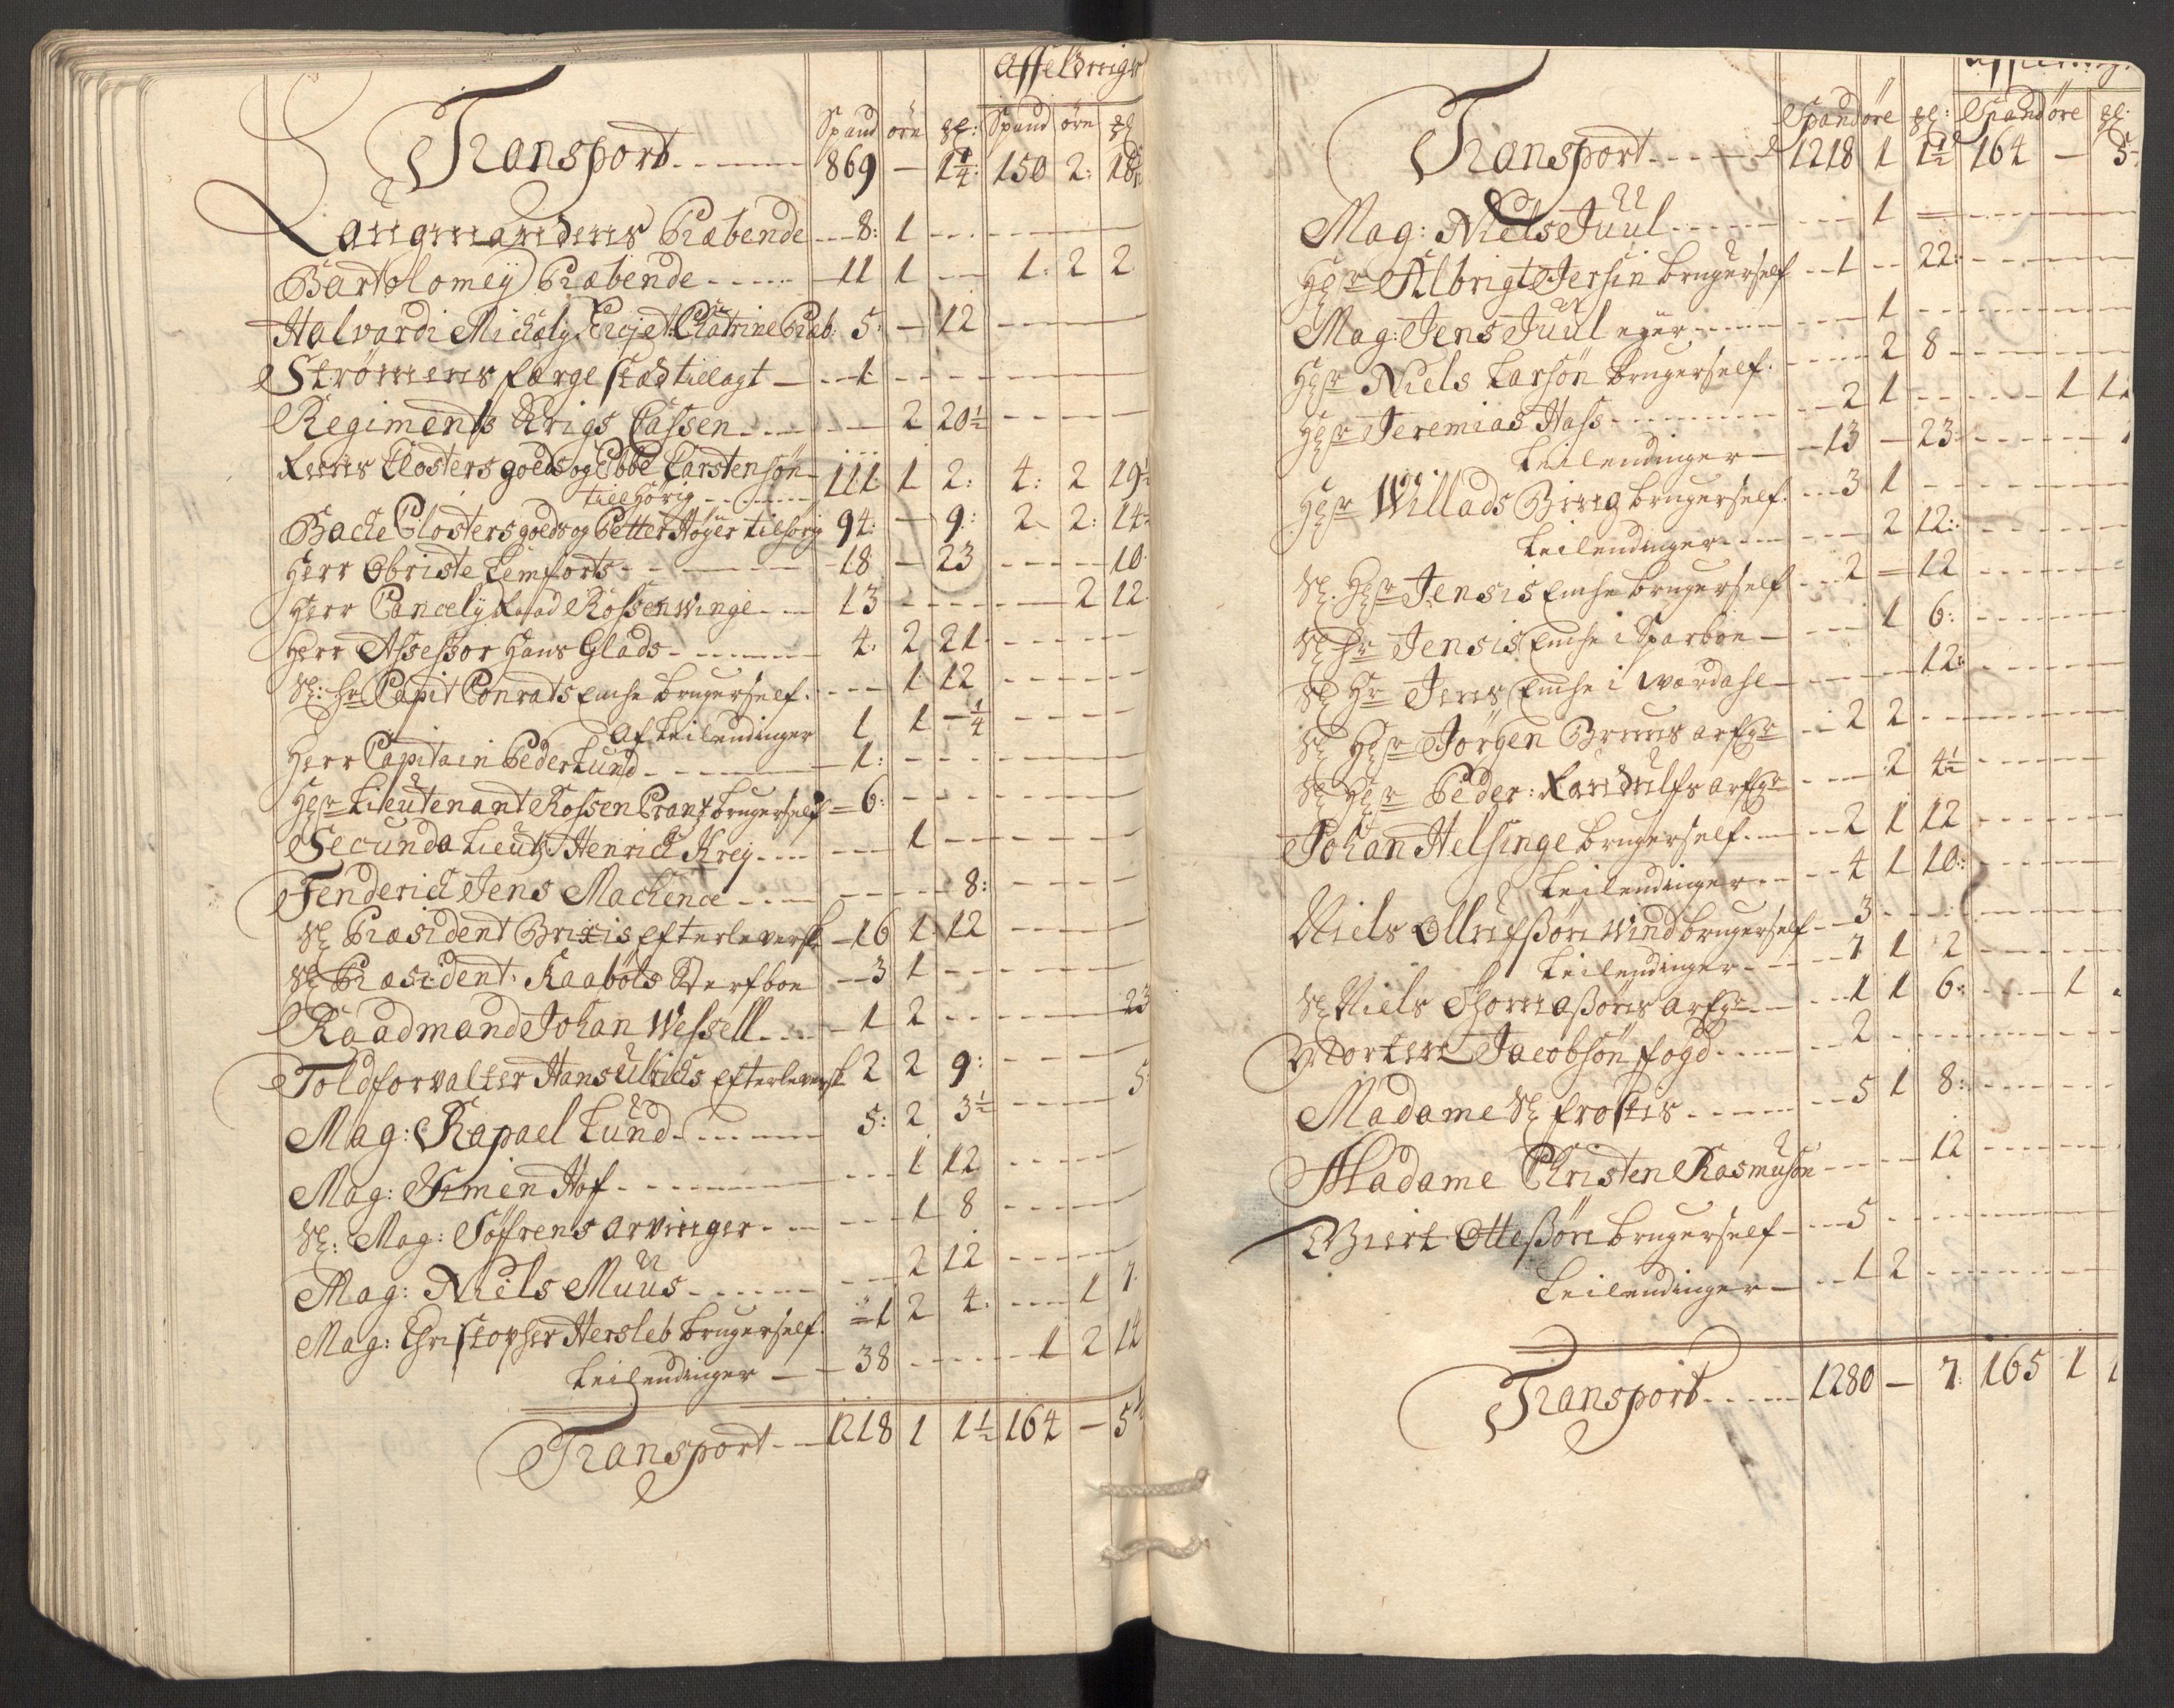 Affelдningen
Spand öre gl: Spand öre gl
Transport 869 — 1 1/4 150 2: 18
Laugmandens Præbende 8: 1
Bartolomey Præbende 11 1 — 1: 2 2
Halvardi Michaly Præb: 5: — 12
Strømens færge stæd tillagt 1
Regiments Krigs Cassen — 2 20½
Reens Closters goeds og Ebbe Carstensön
tillhörig 111 1 2: 4: 2 19
Bache Closters goeds og Petter Höyer tilhörig 94: — 9: 2 2: 14
Herr Obriste Lemforts 18 — 23 10
Herr Cancely Raad Rossenwinge 13 — 2 12
Herr Assessor Hans Glads 4: 2 21
Sl: Hr Capit Conrats Enche brugerself 1 12
Af Leilendinger 1 1 — 1/4
Herr Capitain Peder Lund 1:
Hr Lieutenant Rossen Crantz brugerself 6:
Secunda Lieut: Henrich Krey 1
Fenderich Jens Machence 8:
Sl Præsident Brixis Efterleversk 16 1 12
Sl Præsident Kaaböls Sterfboe 3 1
Raadmand Johan Wessell 1 2 — 23
Toldforvalter Hans Ulrichs Efterleversk 2 2 9: 5
Mag: Rapael Lund 5: 2 3½
Mag: Simen Hof 1 12
Sl: Mag: Söfrens arvinger 1 8
Mag: Niels Muus 2 12
Mag: Christopher Hersleb brugerself 1 2 4: 1 7
Leilendinger 38 — 1 2 14
Transport 1218 1 1½ 164 — 5½
Spand öre gl: Spand öre gl:
Transport 1218 1 1½ 164 — 5
Mag: Niels Juul 1
Hr Albrigt Jersin brugerself 1 — 22:
Mag: Jens Juul eger 1
Hr Niels Larsön brugerself 2 8
Hr Jeremias Hass 2 1 — 1 1
Leilendinger 13 — 23
Hr Willads Bring brugerself 3 1
Leilendinger 2 12:
Sl. Hr Jensis Enche brugerself 2 — 12
Sl Hr Jensis Enche i Sparboe 1 6:
Sl Hr Jens Enche i Værdahl 12:
Sl Hr Jörgen Bruuns arfge 2 2
Sl Hr Peder: Randulfs arfge 2 4½
Johan Helsinge brugerself 2 1 12
Leilendinger 4 1 10:
Niels Ollufßön Wind brugerself 3
Leilendinger 7 1 2
Sl Niels Thomaßöns arfge 1 1 6: 1
Morten Jacobsön fogd 2
Madame Sl frostis 5 1 8:
Madame Christen Rasmusön 12
Giert Otteßön brugerself 5
Leilendinger 1 2
Transport 1280 — 7: 165 1 1